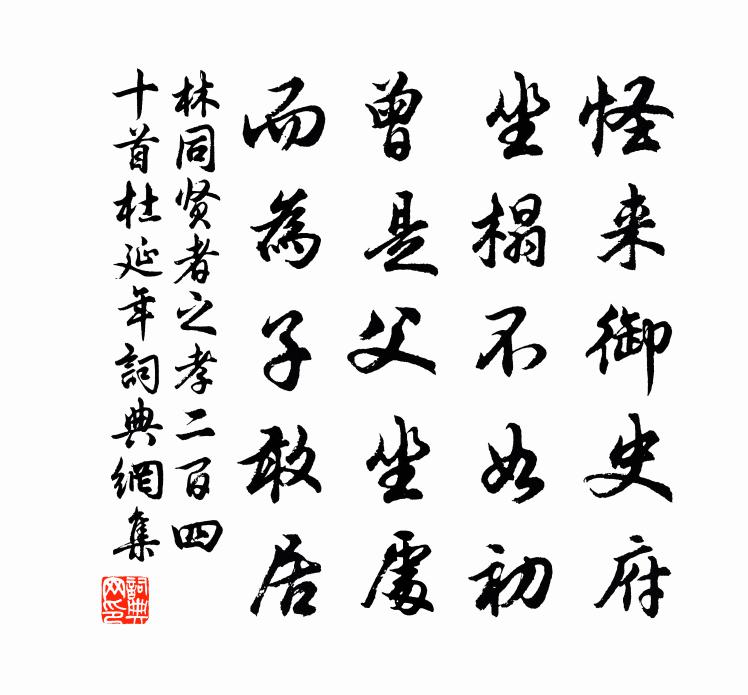 怪来御史府
坐榻不如初
曾是父坐處
而為子敢居
林同贤者之孝二百四
十首杜延年詞典網集
詞典